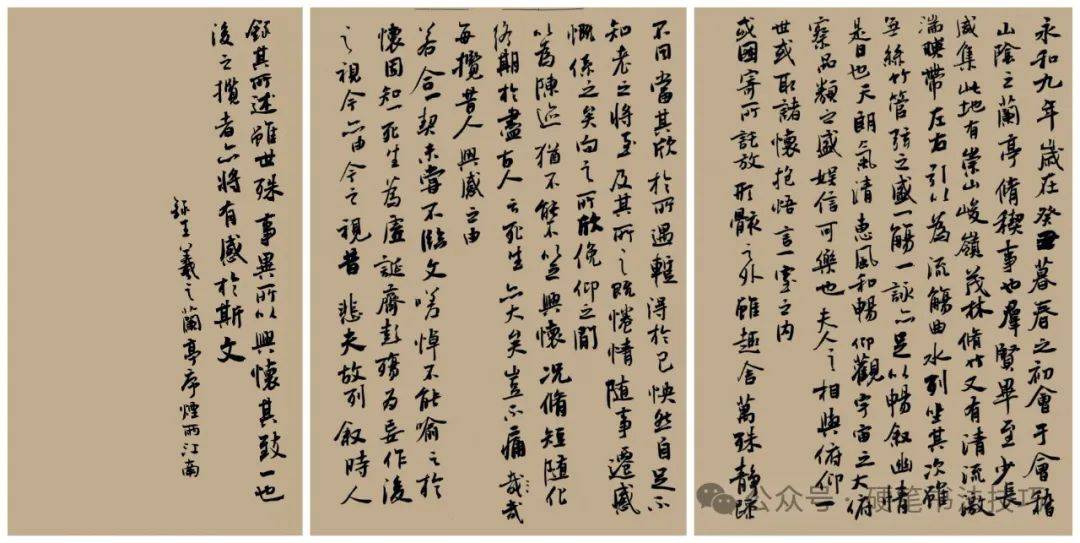 永和九年歲在癸丑暮春之初會于會稽
山陰之蘭亭脩稧事也羣賢畢至少長
咸集此地有崇山峻嶺茂林脩竹又有清流激
湍暎帶左右引以為流觴曲水列坐其次雖
無絲竹管弦之盛一觴一詠亦足以暢叙幽情
是日也天朗氣清惠風和暢仰觀宇宙之大俯
察品類之盛娛信可樂也夫人之相與俯仰一
世或取諸懷抱悟言一室之内
或國寄所託放形骸之外雖趣舍萬殊靜躁
不同當其欣於所遇蹔得於己怏然自足不
知老之將至及其所之既惓情隨事遷感
慨係之矣向之所欣俛仰之間
以為陳迹猶不能不以之興懷況脩短隨化
終期於盡古人云死生亦大矣豈不痛哉哉
每攬昔人興感之由
若合一契未嘗不臨文嗟悼不能喻之於
懷固知一死生為虛誕齊彭殤為妄作後
之視今亦由今之視昔悲夫故列叙時人
錄其所述雖世殊事異所以興懷其致一也
後之攬者亦將有感於斯文
錄王羲之蘭亭序煙雨江南
公众号 · 硬笔书法技巧